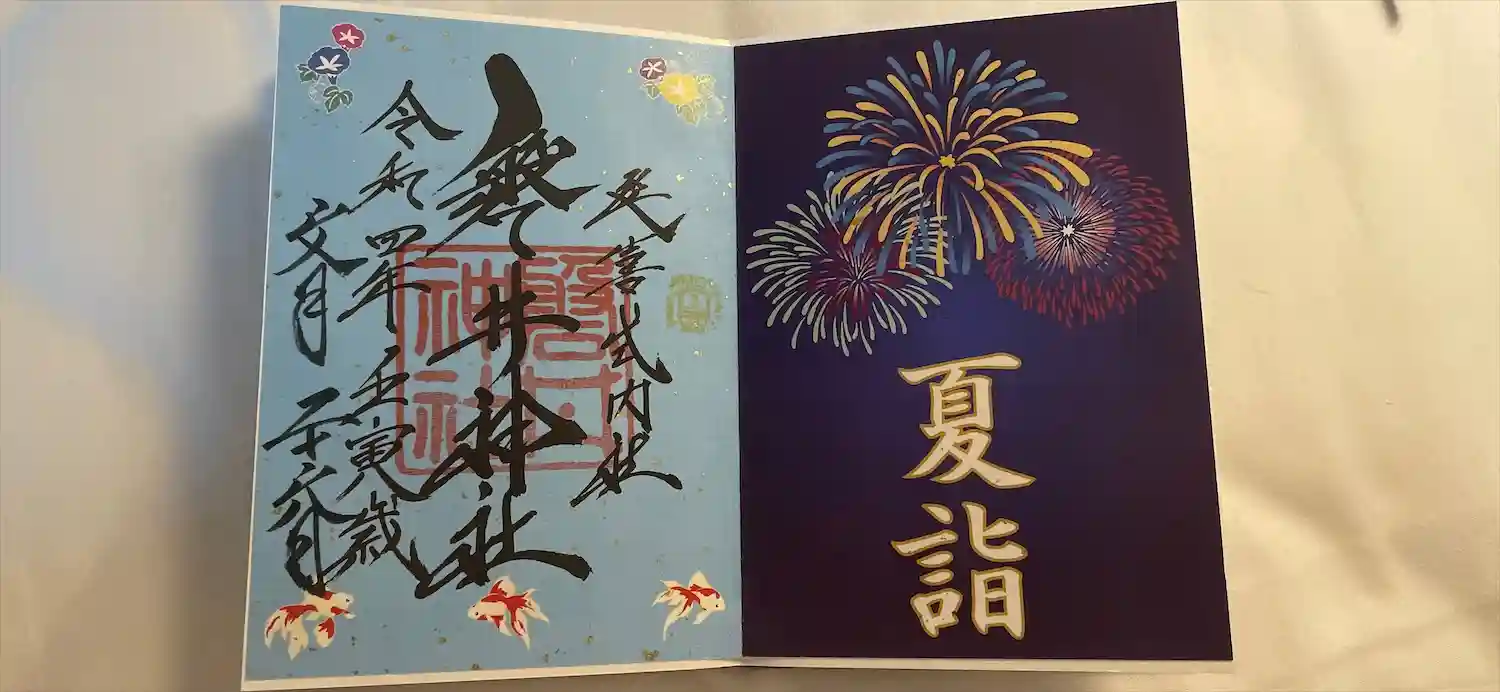 夏詣
延喜式内社
磐井神社
磐井
神社
令和四年 壬寅歳
文月 二十六日